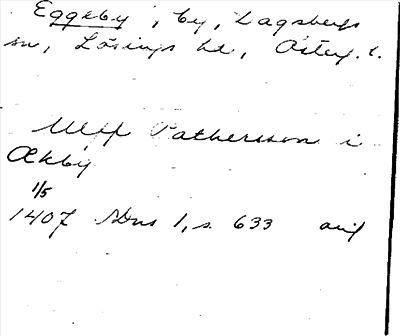 Eggeby, by, Dagsbergs
sn, Lösings hd, Österg. l.
Ulff Pathersson i
Ækby
1/5
1407 SDns 1, s. 633 avs